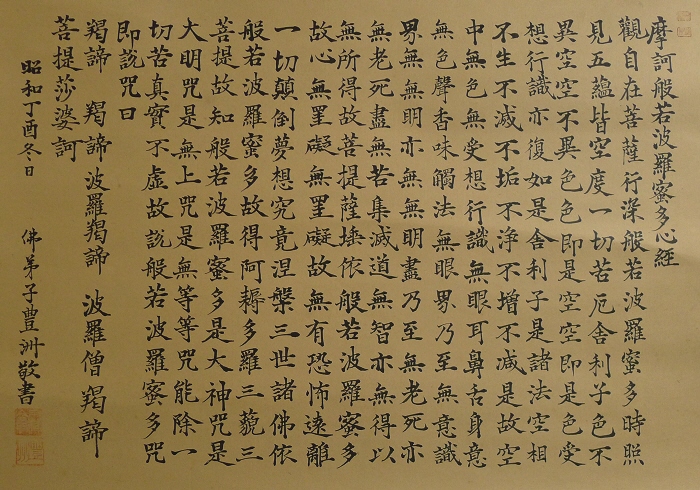 摩訶般若波羅蜜多心經
觀自在菩薩行深般若波羅蜜多時照
見五蘊皆空度一切苦厄舍利子色不
異空空不異色色即是空空即是色受
想行識亦復如是舍利子是諸法空相
不生不滅不垢不淨不增不減是故空
中無色無受想行識無眼耳鼻舌身意
無色聲香味觸法無眼界乃至無意識
界無無明亦無無明盡乃至無老死亦
無老死盡無苦集滅道無智亦無得以
無所得故菩提薩埵依般若波羅蜜多
故心無罣礙無罣礙故無有恐怖遠離
一切顛倒夢想究竟涅槃三世諸佛依
般若波羅蜜多故得阿耨多羅三藐三
菩提故知般若波羅蜜多是大神咒是
大明咒是無上咒是無等等咒能除一
切苦真實不虛故說般若波羅蜜多咒
即說咒曰
羯諦 羯諦 波羅羯諦 波羅僧羯諦
菩提莎婆訶
昭和丁酉冬日 佛弟子豊洲敬書